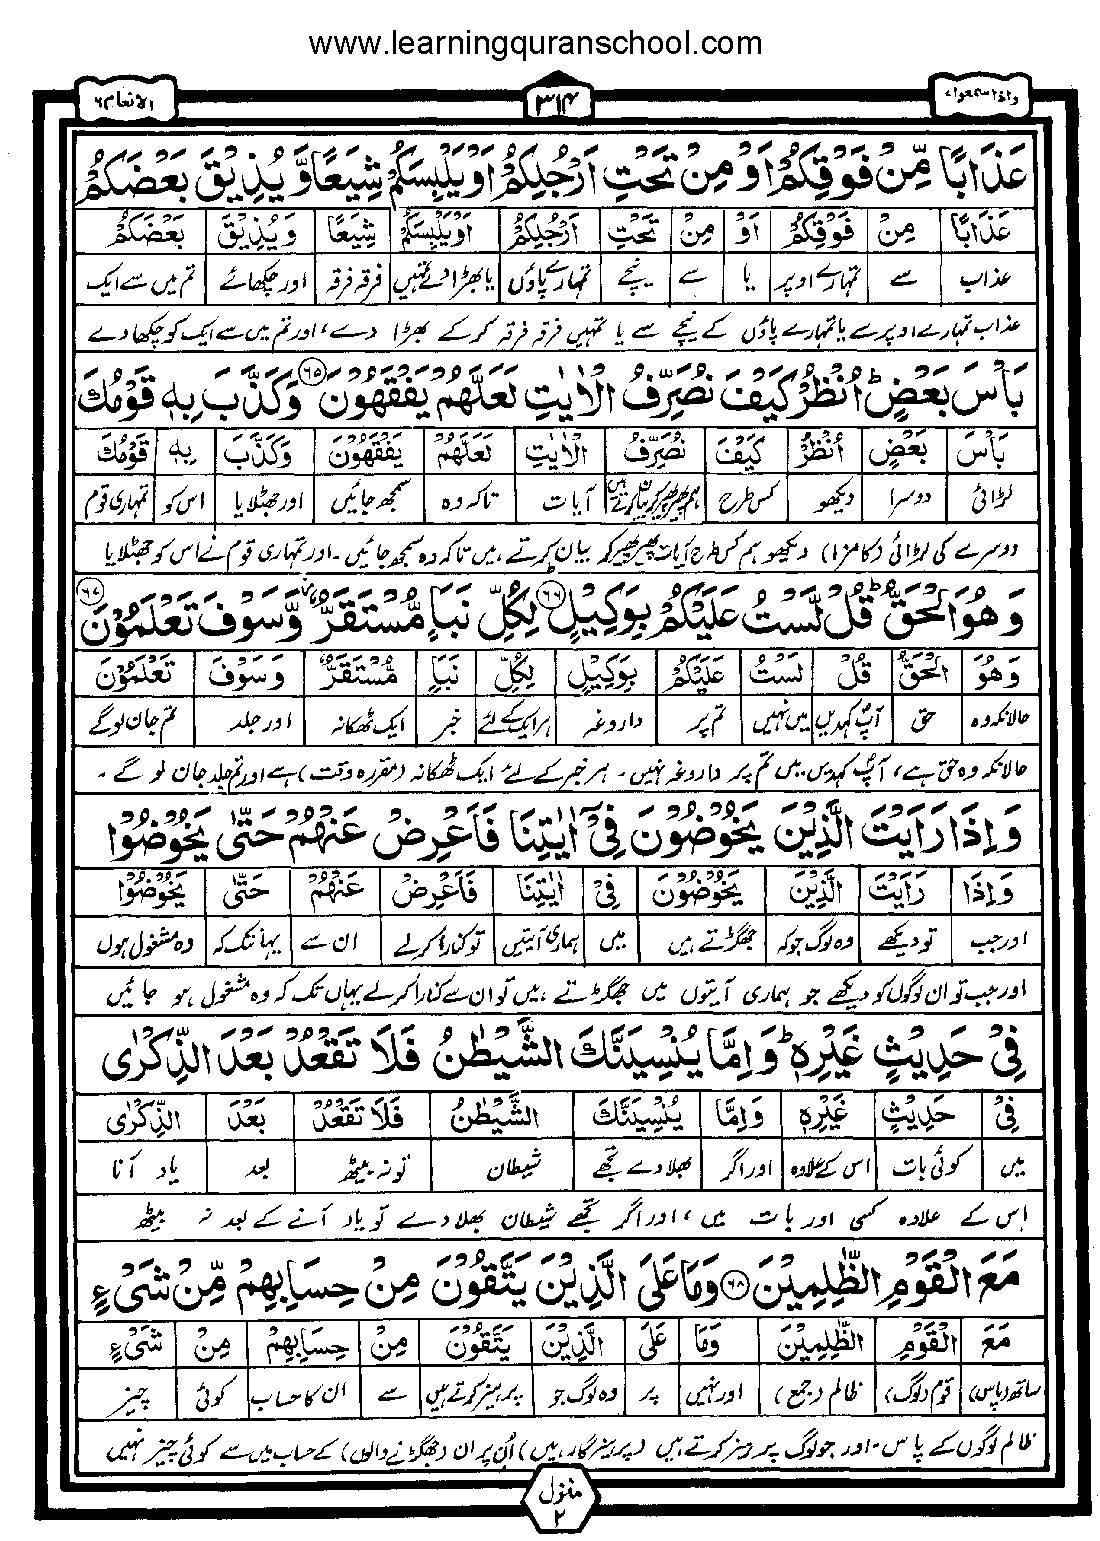 www.learningquranschool.com
واذا سمعوا ٧
٣١٤
الانعام ٦
عَذَابًا مِّنْ فَوْقِكُمْ اَوْ مِنْ تَحْتِ اَرْجُلِكُمْ اَوْ يَلْبِسَكُمْ شِيَعًا وَّ يُذِيْقَ بَعْضَكُمْ
عَذَابًا مِنْ فَوْقِكُمْ اَوْ مِنْ تَحْتِ اَرْجُلِكُمْ اَوْ يَلْبِسَكُمْ شِيَعًا وَ يُذِيْقَ بَعْضَكُمْ
عذاب سے تمہارے اوپر یا سے نیچے تمہارے پاؤں یا بھڑا دے تمہیں فرقہ فرقہ اور چکھائے تم میں سے ایک
عذاب تمہارے اوپر سے یا تمہارے پاؤں کے نیچے سے یا تمہیں فرقہ فرقہ کر کے بھڑا دے، اور تم میں سے ایک کو چکھا دے
بَاْسَ بَعْضٍ ؕ اُنْظُرْ كَيْفَ نُصَرِّفُ الْاٰيٰتِ لَعَلَّهُمْ يَفْقَهُوْنَ ﴿۶۵﴾ وَكَذَّبَ بِهٖ قَوْمُكَ
بَاْسَ بَعْضٍ اُنْظُرْ كَيْفَ نُصَرِّفُ الْاٰيٰتِ لَعَلَّهُمْ يَفْقَهُوْنَ وَكَذَّبَ بِهٖ قَوْمُكَ
لڑائی دوسرا دیکھو کس طرح ہم پھیر پھیر کر بیان کرتے ہیں آیات تاکہ وہ سمجھ جائیں اور جھٹلایا اس کو تمہاری قوم
دوسرے کی لڑائی (کا مزا) دیکھو ہم کس طرح آیات پھیر پھیر کر بیان کرتے ہیں تاکہ وہ سمجھ جائیں۔ اور تمہاری قوم نے اس کو جھٹلایا
وَهُوَ الْحَقُّ ؕ قُلْ لَّسْتُ عَلَيْكُمْ بِوَكِيْلٍ ﴿۶۶﴾ لِكُلِّ نَبَاٍ مُّسْتَقَرٌّ وَّسَوْفَ تَعْلَمُوْنَ ﴿۶۷﴾
وَهُوَ الْحَقُّ قُلْ لَسْتُ عَلَيْكُمْ بِوَكِيْلٍ لِكُلِّ نَبَاٍ مُّسْتَقَرٌّ وَسَوْفَ تَعْلَمُوْنَ
حالانکہ وہ حق آپ کہدیں میں نہیں تم پر داروغہ ہر ایک کے لئے خبر ایک ٹھکانہ اور جلد تم جان لو گے
حالانکہ وہ حق ہے، آپ کہدیں میں تم پر داروغہ نہیں۔ ہر خبر کے لئے ایک ٹھکانہ (مقررہ وقت) ہے اور تم جلد جان لو گے۔
وَاِذَا رَاَيْتَ الَّذِيْنَ يَخُوْضُوْنَ فِيْۤ اٰيٰتِنَا فَاَعْرِضْ عَنْهُمْ حَتّٰى يَخُوْضُوْا
وَاِذَا رَاَيْتَ الَّذِيْنَ يَخُوْضُوْنَ فِيْ اٰيٰتِنَا فَاَعْرِضْ عَنْهُمْ حَتّٰى يَخُوْضُوْا
اور جب تو دیکھے وہ لوگ جو کہ جھگڑتے ہیں میں ہماری آیتیں تو کنارا کر لے ان سے یہانتک کہ وہ مشغول ہوں
اور جب تو ان لوگوں کو دیکھے جو ہماری آیتوں میں جھگڑتے ہیں تو ان سے کنارا کر لے یہاں تک کہ وہ مشغول ہو جائیں
فِيْ حَدِيْثٍ غَيْرِهٖ ؕ وَ اِمَّا يُنْسِيَنَّكَ الشَّيْطٰنُ فَلَا تَقْعُدْ بَعْدَ الذِّكْرٰى
فِيْ حَدِيْثٍ غَيْرِهٖ وَ اِمَّا يُنْسِيَنَّكَ الشَّيْطٰنُ فَلَا تَقْعُدْ بَعْدَ الذِّكْرٰى
میں کوئی بات اس کے علاوہ اور اگر بھلا دے تجھے شیطان تو نہ بیٹھ بعد یاد آنا
اس کے علاوہ کسی اور بات میں، اور اگر تجھے شیطان بھلا دے تو یاد آنے کے بعد نہ بیٹھ
مَعَ الْقَوْمِ الظّٰلِمِيْنَ ﴿۶۸﴾ وَمَا عَلَى الَّذِيْنَ يَتَّقُوْنَ مِنْ حِسَابِهِمْ مِّنْ شَيْءٍ
مَعَ الْقَوْمِ الظّٰلِمِيْنَ وَمَا عَلَى الَّذِيْنَ يَتَّقُوْنَ مِنْ حِسَابِهِمْ مِنْ شَيْءٍ
ساتھ (پاس) قوم (لوگ) ظالم (جمع) اور نہیں پر وہ لوگ جو پرہیز کرتے ہیں سے ان کا حساب کوئی چیز
ظالم لوگوں کے پاس۔ اور جو لوگ پرہیز کرتے ہیں (پرہیزگار ہیں) اُن پر ان (جھگڑنے والوں) کے حساب میں سے کوئی چیز نہیں
منزل ٢